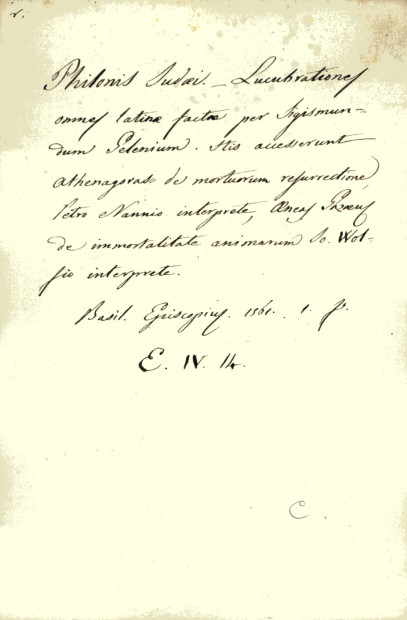 r.
Philonis Judæi. _ Lucubrationes
omnes latinæ factæ per Sigismun-
dum Gelenium. His accesserunt
Athenagoras de mortuorum resurrectione,
Petro Nannio interprete, Æneas Gazæus
de immortalitate animarum Jo. Wol-
fio interprete.
Basil. Episcopius. 1561. 1. f.
E. IV. 14.
C.